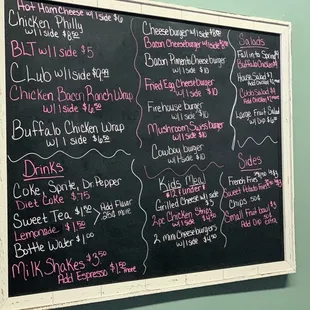 Hot Ham Cheese w/1 side $6
Chicken Philly
w/1 side $6.50
BLT w/1 side $5
Club w/1 side $9.99
Chicken Bacon Ranch Wrap
w/1 side $6.50
Buffalo Chicken Wrap
w/1 side $6.50
Drinks
Coke, Sprite, Dr. Pepper
Diet Coke $.75
Sweet Tea $1.50
Lemonade $1.50
Add Flavor
$.50 more
Bottle Water $1.00
Milk Shakes $3.50
Add Espresso $1.50 more
Cheeseburger w/1 side
Bacon Cheeseburger w/1 side
Bacon Pimento Cheeseburger
w/1 side $10
Fried Egg Cheeseburger
w/1 side $10
Firehouse burger
w/1 side $10
Mushroom Swiss burger
w/1 side $10
Cowboy burger
w/1 side
Kids Menu
$12 & under
Grilled Cheese w/1 side $5
2pc Chicken Strips
w/1 side
2 mini Cheeseburgers
w/1 side
Salads
Fall in to Spring
Buffalo Chicken
House Salad
Add Chicken
Chef Salad
Add Chicken
Large Fruit Salad
w/ Dip
Sides
French Fries
Sweet Potato Fries
Chips 50¢
Small Fruit bowl $3
Add Dip